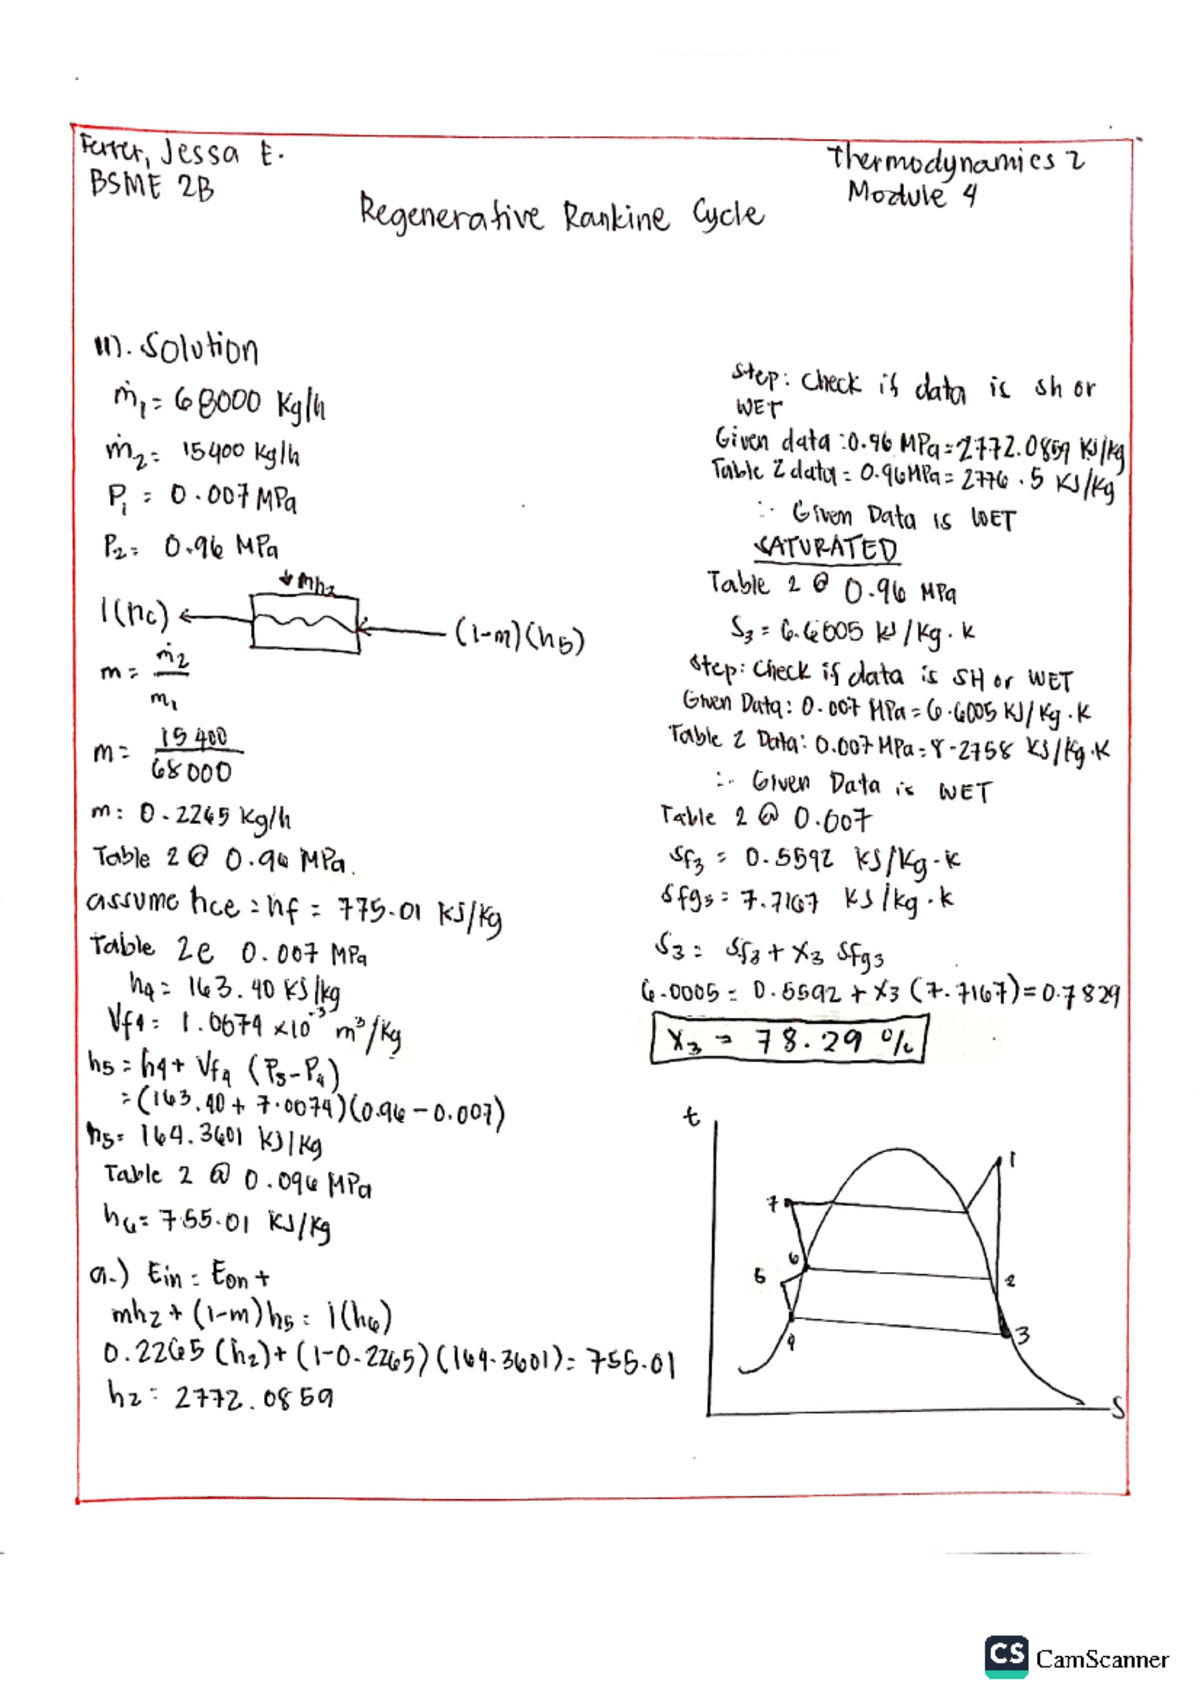 Ferrer, Jessa E.
BSME 2B
Thermodynamics 2
Module 4
Regenerative Rankine Cycle
111). Solution
ṁ₁ = 68000 Kg/h
ṁ₂ = 15400 Kg/h
P₁ = 0.007 MPa
P₂ = 0.96 MPa
↓ mh₂
1(hc) ← (1-m)(h5)
m = ṁ₂
m₁
m = 15400
68000
m: 0.2265 Kg/h
Table 2 @ 0.96 MPa.
assume hce = hf = 775.01 KJ/Kg
Table 2e 0.007 MPa
h4 = 163.40 KJ/kg
Vf4 = 1.0074 x10⁻³ m³/Kg
h5 = h4 + Vf4 (P5-P4)
= (163.40 + 7.0074)(0.96 - 0.007)
h5 = 164.3601 KJ/Kg
Table 2 @ 0.096 MPa
h6 = 755.01 KJ/Kg
a.) Ein = Eon+
mh2 + (1-m)h5 = 1(h6)
0.2265 (h2) + (1-0.2265)(164.3601) = 755.01
h2 = 2772.0859
Step: Check if data is sh or
WET
Given data : 0.96 MPa = 2772.0859 KJ/Kg
Table 2 data = 0.96 MPa = 2776.5 KJ/Kg
∴ Given Data is WET
SATURATED
Table 2 @ 0.96 MPa
S3 = 6.6005 KJ/Kg.K
Step: Check if data is SH or WET
Given Data: 0.007 MPa = 6.6005 KJ/Kg.K
Table 2 Data: 0.007 MPa = 8.2758 KJ/Kg.K
∴ Given Data is WET
Table 2 @ 0.007
Sf3 = 0.5592 KJ/Kg-K
Sfg3 = 7.7167 KJ/kg.k
S3 = Sf3 + X3 Sfg3
6.6005 = 0.5592 + X3 (7.7167) = 0.7829
X3 = 78.29 %
t
1
7
6
5
2
4
3
S
CS CamScanner